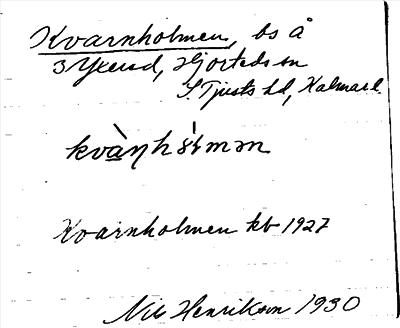 Kvarnholmen, bs å
3 Yxered, Hjorteds sn
S. Tjusts hd, Kalmar l.
Kvarnholmen kb 1927
Nils Henrikson 1930